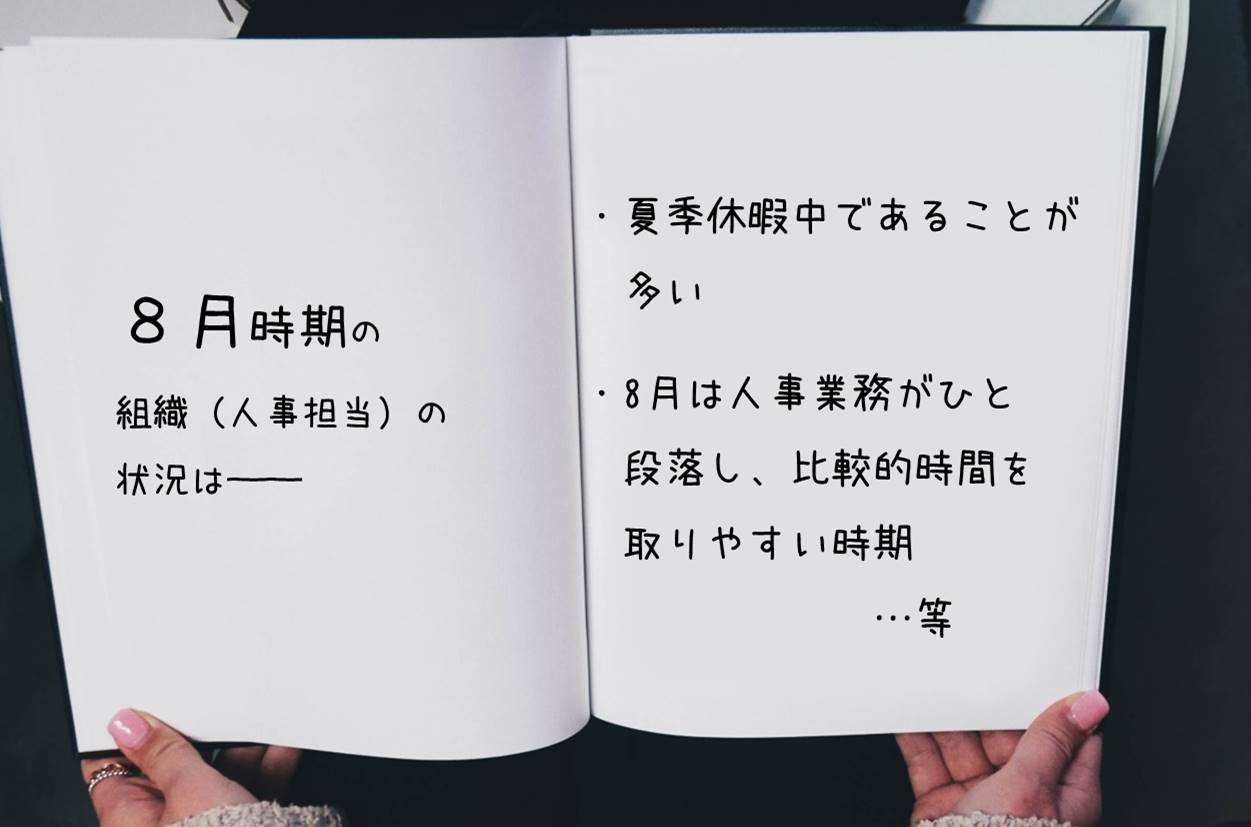 8月時期の
組織（人事担当）の
状況は――
・夏季休暇中であることが
多い
・8月は人事業務がひと
段落し、比較的時間を
取りやすい時期
…等